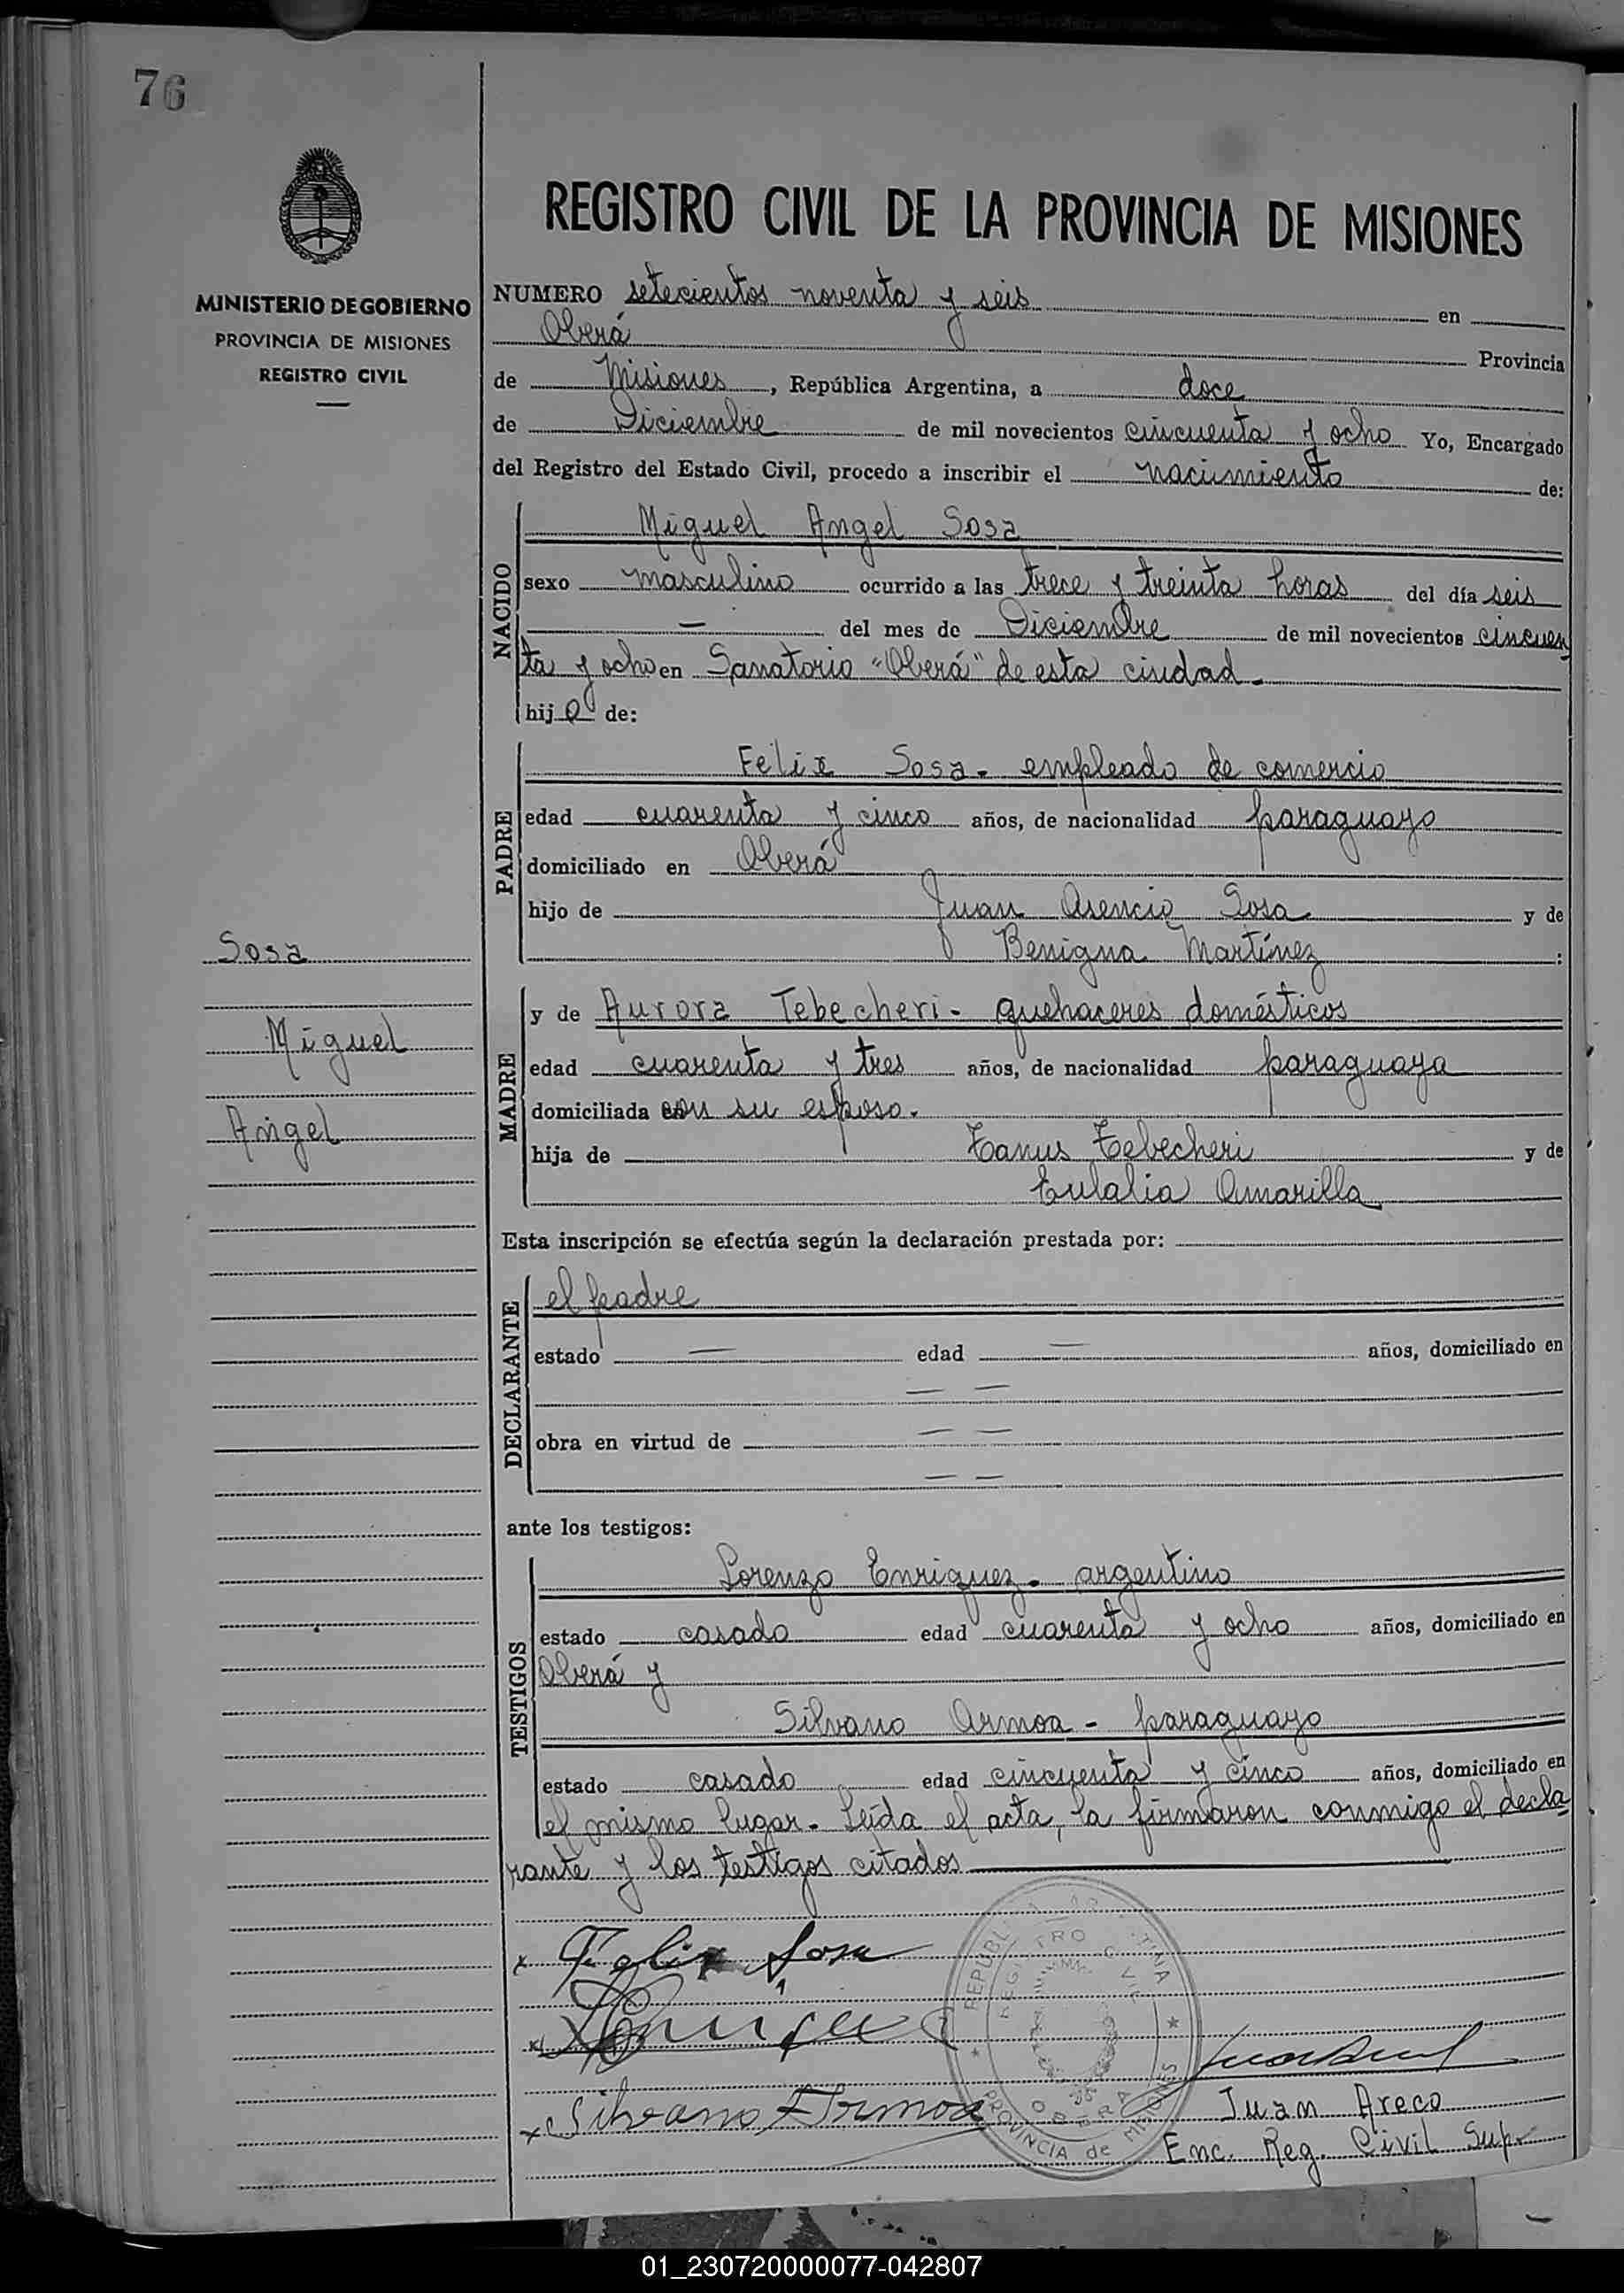 76
MINISTERIO DE GOBIERNO
PROVINCIA DE MISIONES
REGISTRO CIVIL
Sosa
Miguel
Angel
REGISTRO CIVIL DE LA PROVINCIA DE MISIONES
NUMERO setecientos noventa y seis en
Oberá Provincia
de Misiones, República Argentina, a doce
de Diciembre de mil novecientos cincuenta y ocho Yo, Encargado
del Registro del Estado Civil, procedo a inscribir el nacimiento de:
NACIDO
Miguel Angel Sosa
sexo masculino ocurrido a las trece y treinta horas del día seis
— del mes de Diciembre de mil novecientos cincuen
ta y ocho en Sanatorio "Oberá" de esta ciudad.
hijo de:
PADRE
Felix Sosa - empleado de comercio
edad cuarenta y cinco años, de nacionalidad paraguayo
domiciliado en Oberá
hijo de Juan Asencio Sosa y de
Benigna Martínez :
MADRE
y de Aurora Tebecheri - quehaceres domésticos
edad cuarenta y tres años, de nacionalidad paraguaya
domiciliada con su esposo.
hija de Tanus Tebecheri y de
Eulalia Amarilla
Esta inscripción se efectúa según la declaración prestada por:
DECLARANTE
el padre
estado — edad — años, domiciliado en
— —
obra en virtud de — —
— —
ante los testigos:
TESTIGOS
Lorenzo Enriquez - argentino
estado casado edad cuarenta y ocho años, domiciliado en
Oberá y
Silvano Armoa - paraguayo
estado casado edad cincuenta y cinco años, domiciliado en
el mismo lugar. Leída el acta, la firmaron conmigo el decla
rante y los testigos citados
x Felix Sosa
x Silvano Armoa
Juan Areco
Enc. Reg. Civil Sup.
PROVINCIA de MISIONES
OBERA
01_230720000077-042807